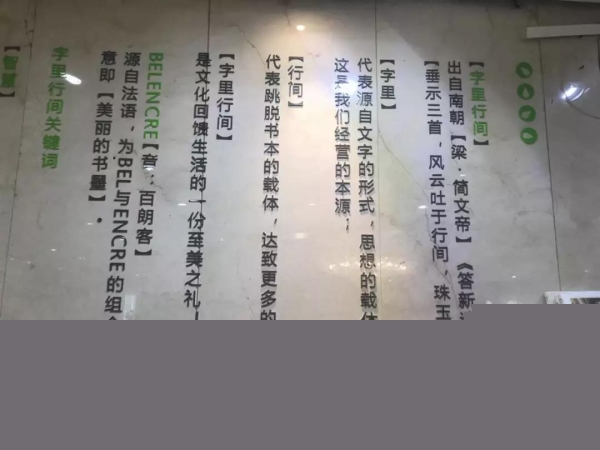 【字里行间】
出自南朝【梁·简文帝】《答新
【垂示三首，风云吐于行间，珠玉
【字里】
代表源自文字的形式，思想的载体
这是我们经营的本源；
【行间】
代表跳脱书本的载体，达致更多的
【字里行间】
是文化回馈生活的一份至美之礼！
BELENCRE【音：百朗客】
源自法语，为BEL与ENCRE的组合
意即【美丽的书量】·
字里行间关键词
【智慧】